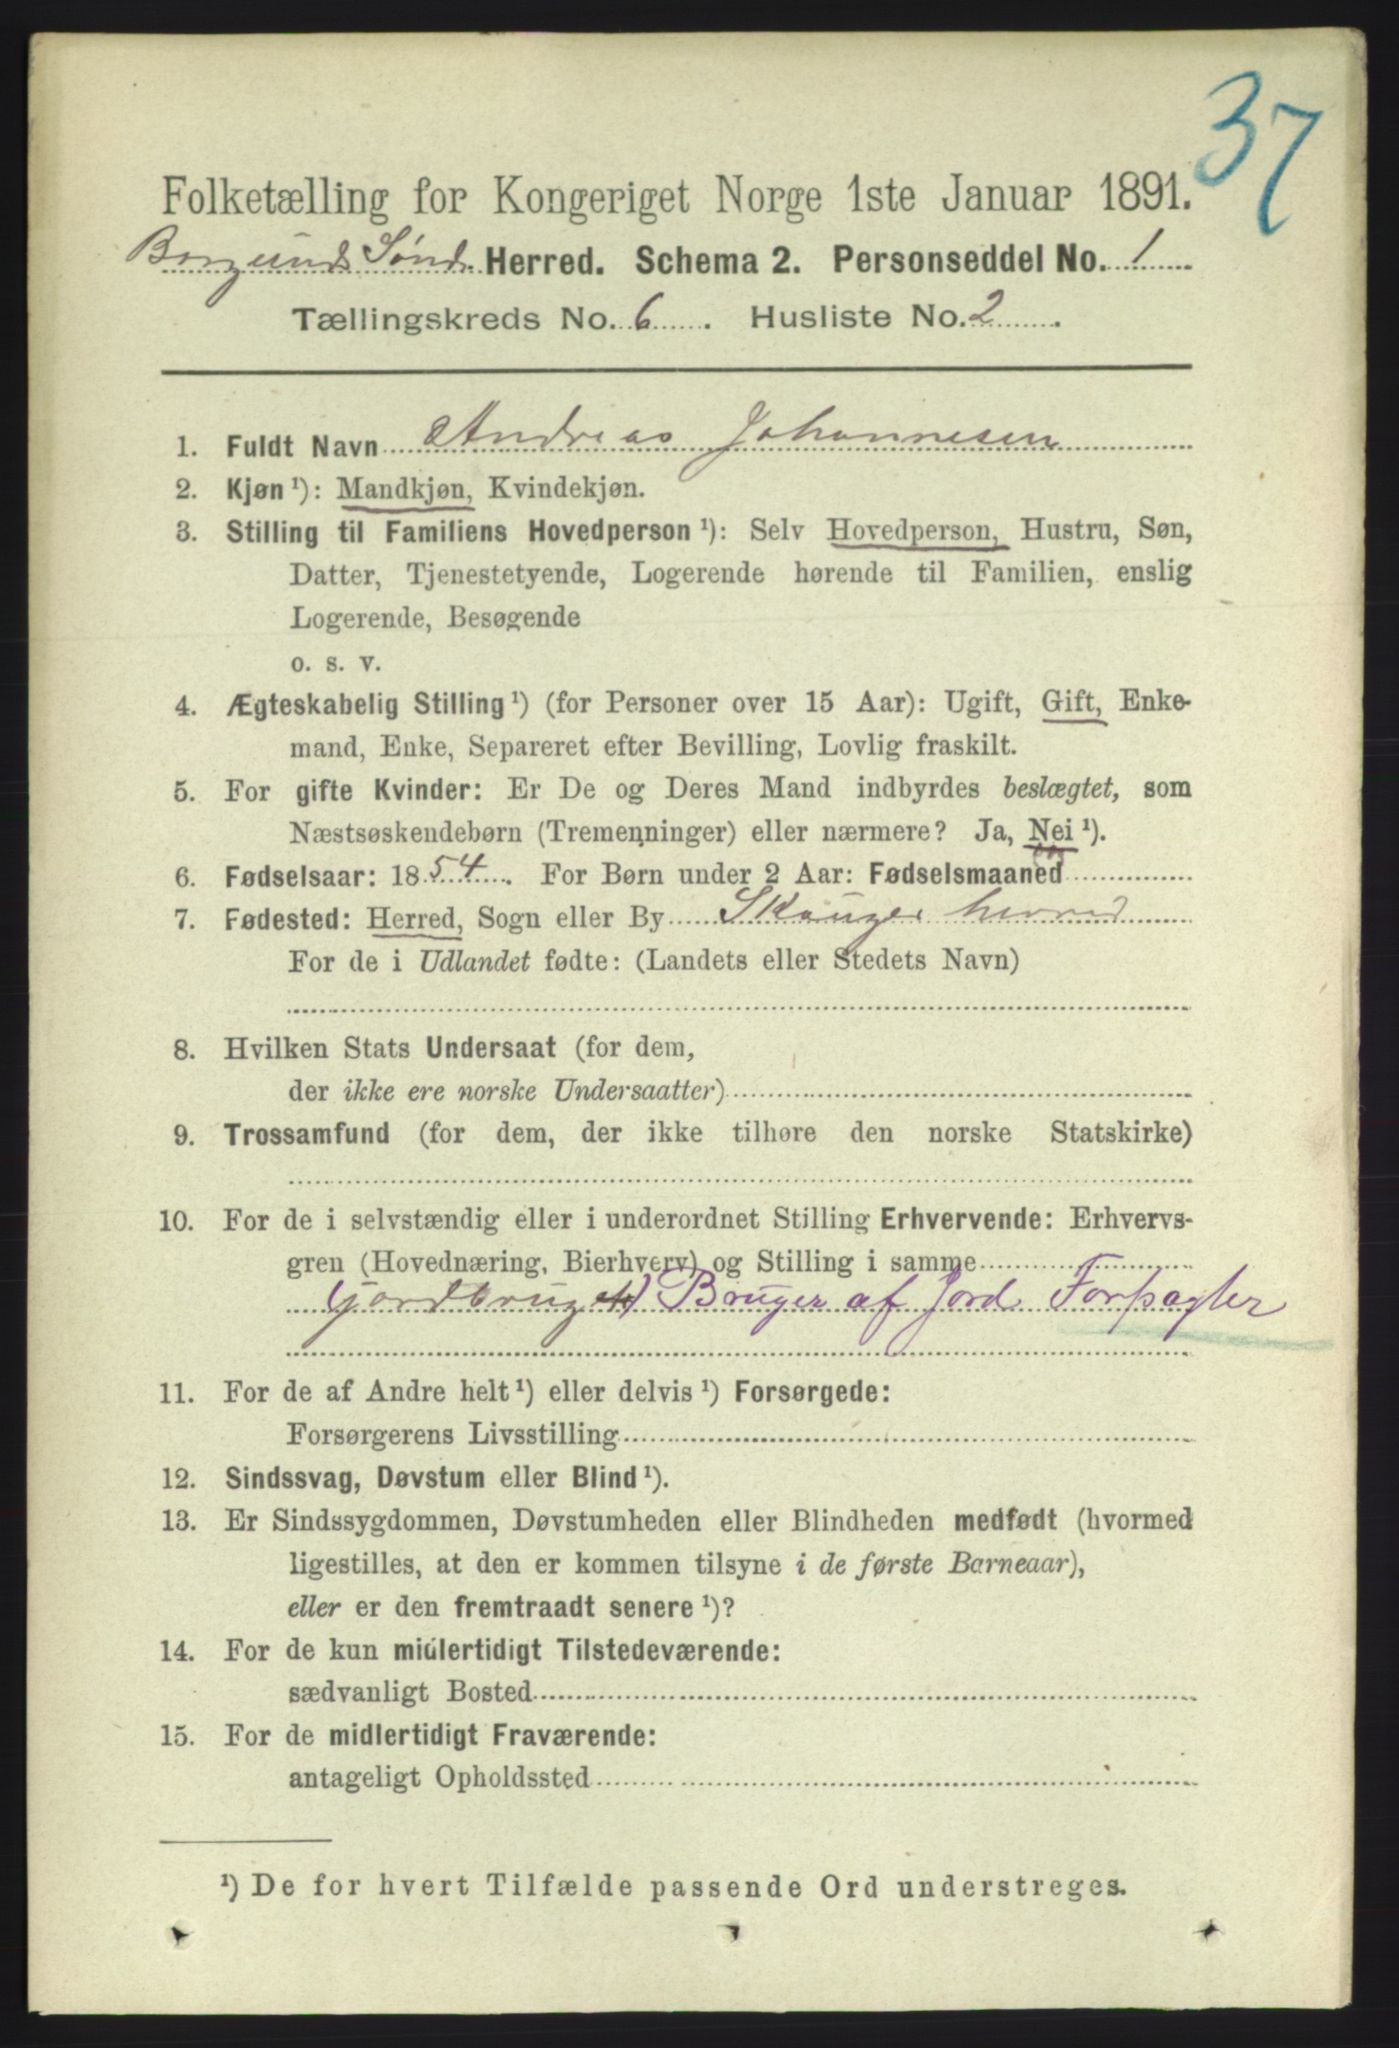 37
Folketælling for Kongeriget Norge 1ste Januar 1891.
Borgunds Sønd. Herred. Schema 2. Personseddel No. 1
Tællingskreds No. 6. Husliste No. 2.
1. Fuldt Navn Andreas Johannesen
2. Kjøn ¹): Mandkjøn, Kvindekjøn.
3. Stilling til Familiens Hovedperson ¹): Selv Hovedperson, Hustru, Søn,
Datter, Tjenestetyende, Logerende hørende til Familien, enslig
Logerende, Besøgende
o. s. v.
4. Ægteskabelig Stilling ¹) (for Personer over 15 Aar): Ugift, Gift, Enke-
mand, Enke, Separeret efter Bevilling, Lovlig fraskilt.
5. For gifte Kvinder: Er De og Deres Mand indbyrdes beslægtet, som
Næstsøskendebørn (Tremenninger) eller nærmere? Ja, Nei ¹).
6. Fødselsaar: 1854. For Børn under 2 Aar: Fødselsmaaned
7. Fødested: Herred, Sogn eller By Skouger herred
For de i Udlandet fødte: (Landets eller Stedets Navn)
8. Hvilken Stats Undersaat (for dem,
der ikke ere norske Undersaatter)
9. Trossamfund (for dem, der ikke tilhøre den norske Statskirke)
10. For de i selvstændig eller i underordnet Stilling Erhvervende: Erhvervs-
gren (Hovednæring, Bierhverv) og Stilling i samme
(jordbruget) Bruger af Jord Forpagter
11. For de af Andre helt ¹) eller delvis ¹) Forsørgede:
Forsørgerens Livsstilling
12. Sindssvag, Døvstum eller Blind ¹).
13. Er Sindssygdommen, Døvstumheden eller Blindheden medfødt (hvormed
ligestilles, at den er kommen tilsyne i de første Barneaar),
eller er den fremtraadt senere ¹)?
14. For de kun midlertidigt Tilstedeværende:
sædvanligt Bosted
15. For de midlertidigt Fraværende:
antageligt Opholdssted
¹) De for hvert Tilfælde passende Ord understreges.